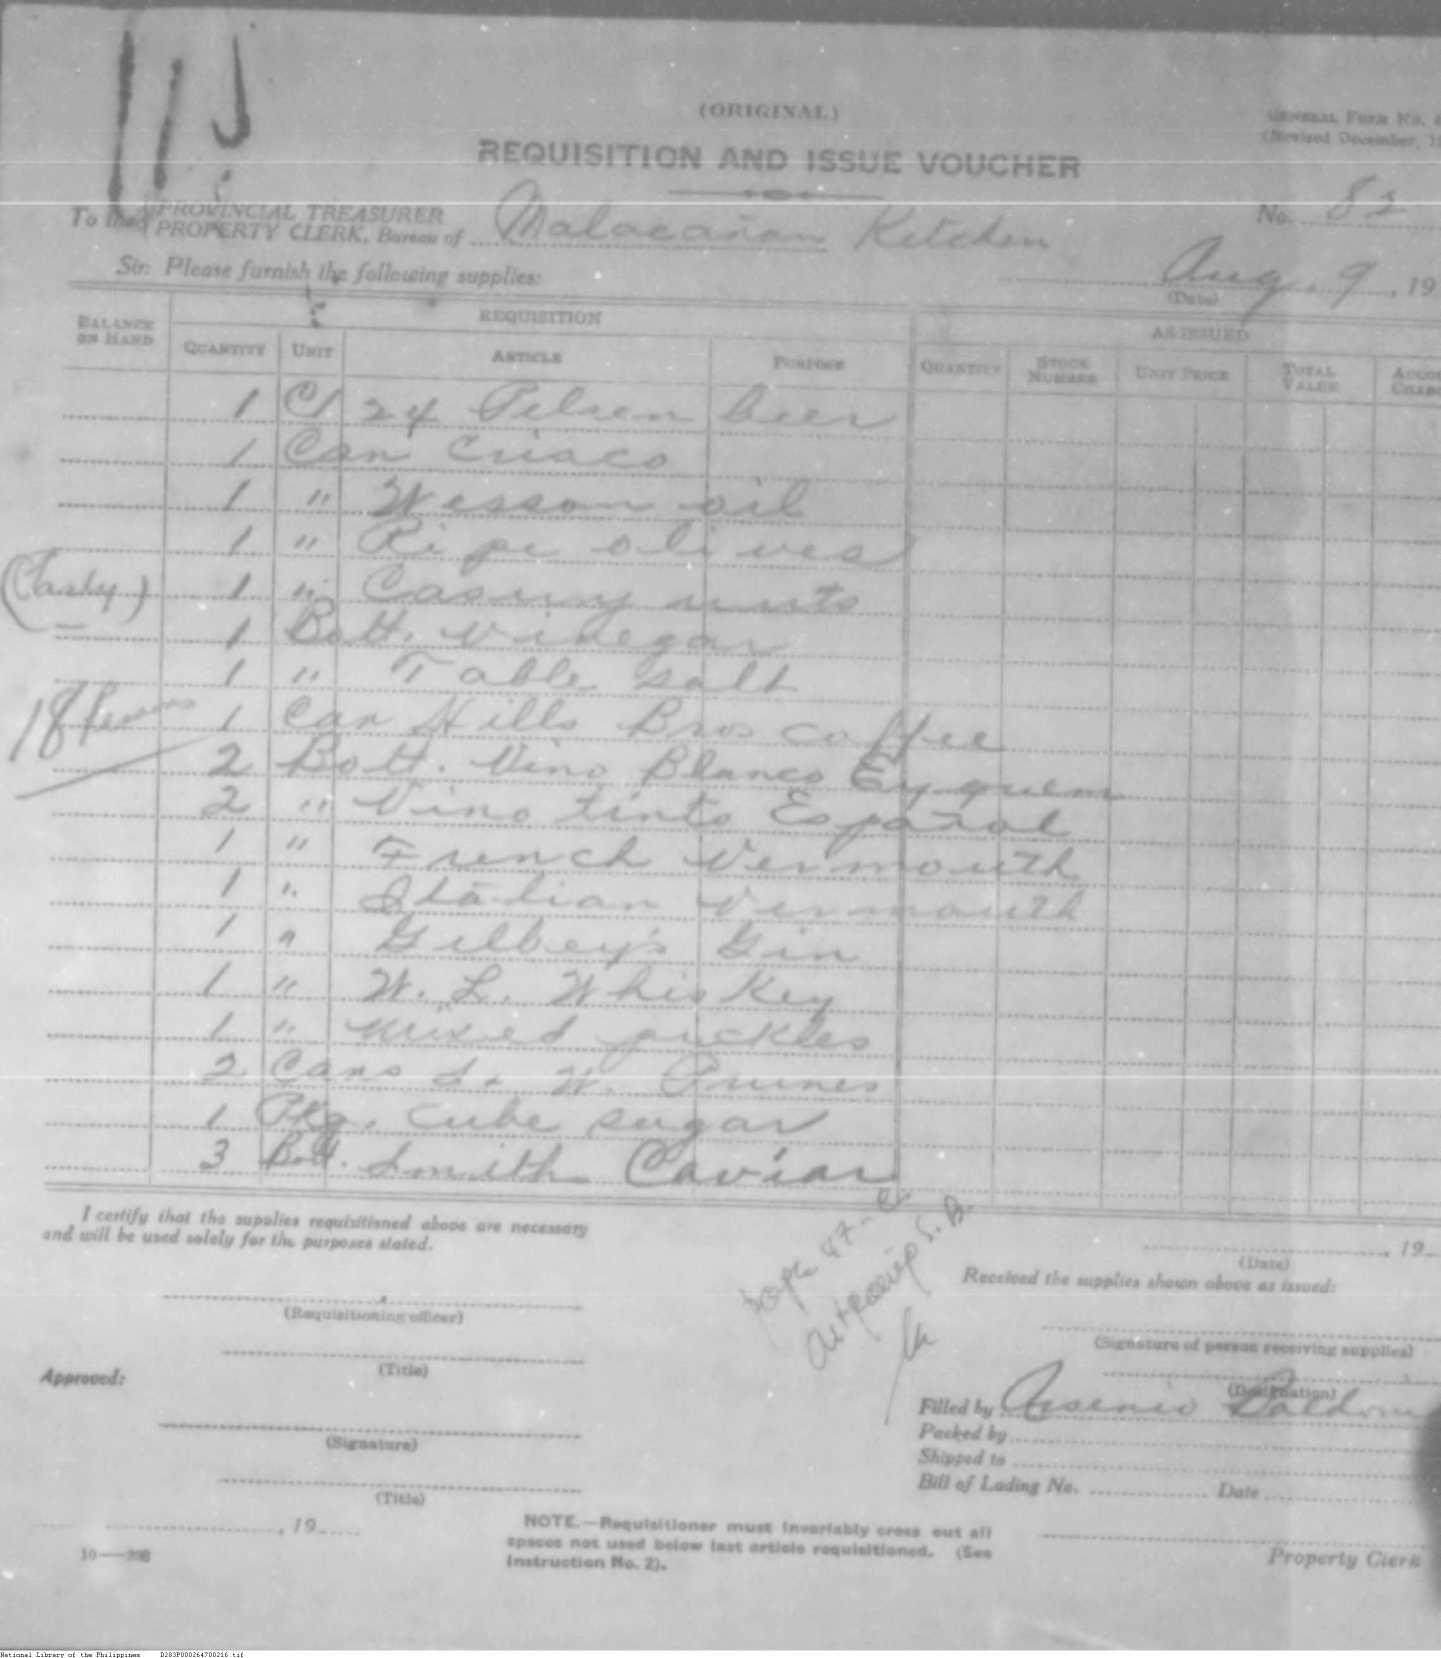 (ORIGINAL)
GENERAL FORM No.
(Revised December, 19
REQUISITION AND ISSUE VOUCHER
No. 82
To the PROVINCIAL TREASURER
PROPERTY CLERK, Bureau of Malacañan Kitchen
Aug. 9, 19
(Date)
Sir: Please furnish the following supplies:
BALANCE ON HAND REQUISITION AS ISSUED
QUANTITY UNIT ARTICLE PURPOSE QUANTITY STOCK NUMBER UNIT PRICE TOTAL VALUE
1 C/ 24 Pilsen beer
1 Can Crisco
1 " Wesson oil
1 " Ripe olives
(Party) 1 " Casuy nuts
1 Bott. Vinegar
1 " Table salt
18 Persons 1 Can Hills Bros coffee
2 Bott. Vino Blanco Eyquem
2 " Vino tinto Español
1 " French Vermouth
1 " Italian Vermouth
1 " Gilbey's Gin
1 " W. L. Whiskey
1 " mixed pickles
2 Cans S. W. Prunes
1 Pkg. cube sugar
3 Bott. Smith Caviar
I certify that the supplies requisitioned above are necessary
and will be used solely for the purposes stated.
, 19
(Date)
Received the supplies shown above as issued:
(Requisitioning officer)
(Signature of person receiving supplies)
(Title)
(Designation)
Approved:
Filled by Arsenio
Packed by
(Signature)
Shipped to
Bill of Lading No. Date
(Title)
, 19
NOTE.—Requisitioner must invariably cross out all
spaces not used below last article requisitioned. (See
Instruction No. 2).
Property Clerk
10—398
National Library of the Philippines D283P000264700216.tif